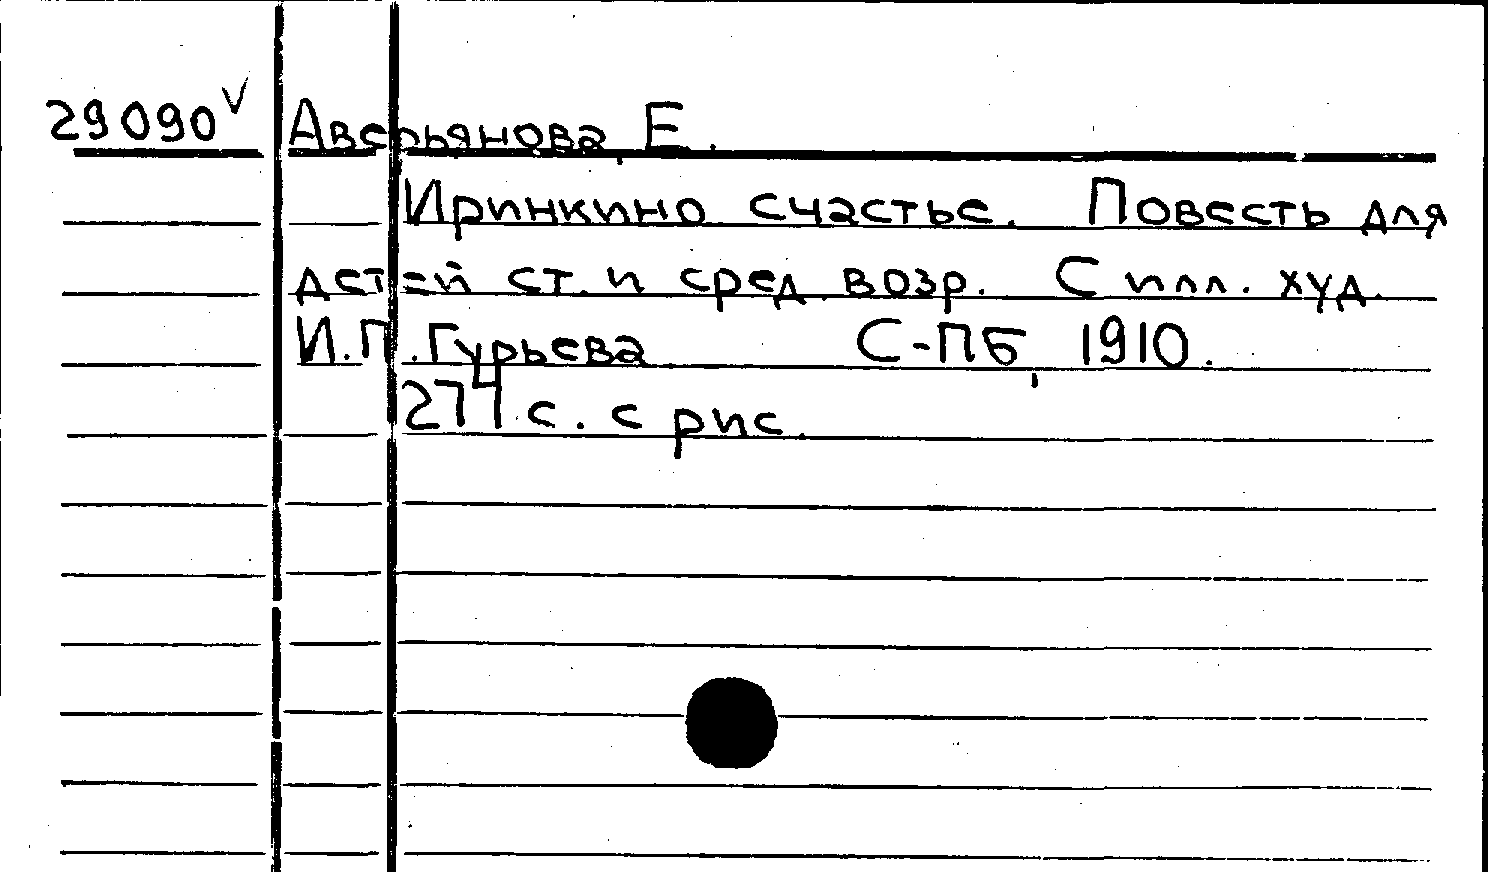 29090 √ Аверьянова, Е.
Иринкино счастье. Повесть для
детей ст. и сред. возр. С илл. худ.
И.П.Гурьева С-ПБ, 1910.
274 с. с рис.